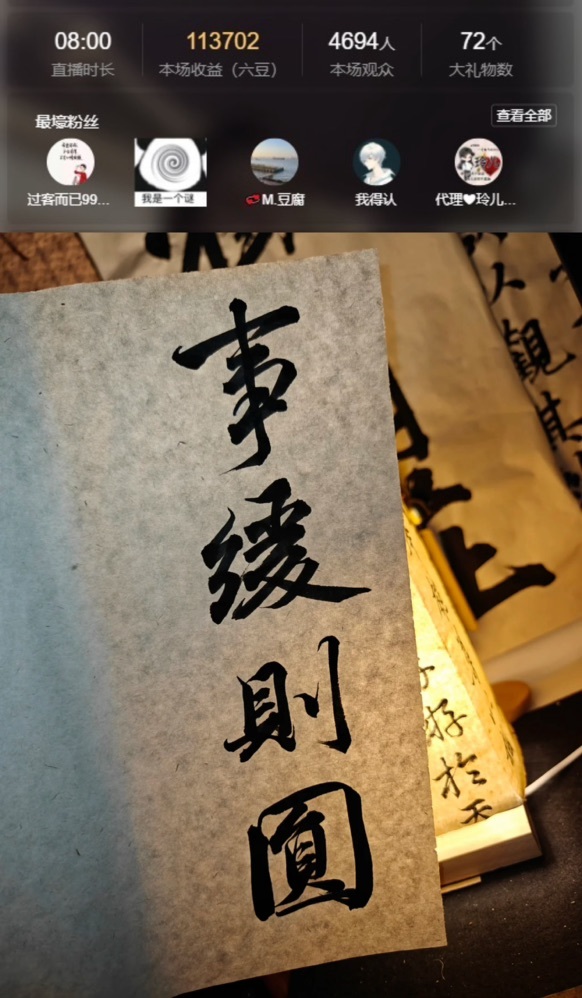 08:00 113702 4694人 72个
直播时长 本场收益（六豆） 本场观众 大礼物数
最壕粉丝 查看全部
过客而已99... 我是一个谜 M.豆腐 我得认 代理❤玲儿...
事緩則圓
人觀其
上
游於